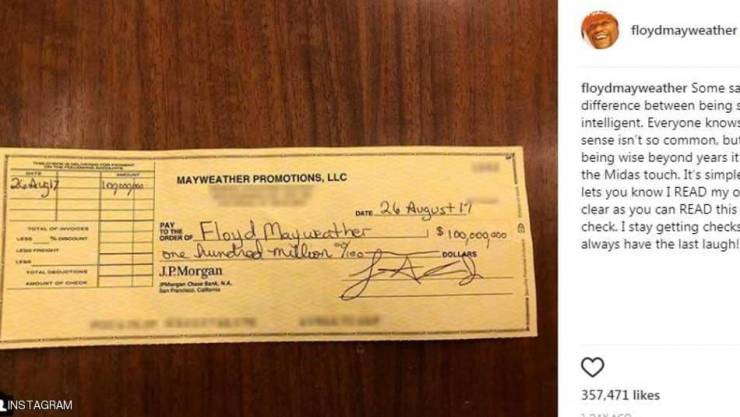 floydmayweather
DATE
AMOUNT
26 Aug 17
MAYWEATHER PROMOTIONS, LLC
DATE 26 August 17
PAY
TO THE
ORDER OF Floyd Mayweather $ 100,000,000
one hundred million %100 DOLLARS
TOTAL OF INVOICES
LESS % DISCOUNT
LESS FREIGHT
LESS
TOTAL DEDUCTIONS
AMOUNT OF CHECK
J.P.Morgan
JPMorgan Chase Bank, N.A.
San Francisco, California
INSTAGRAM
floydmayweather Some sa
difference between being s
intelligent. Everyone knows
sense isn't so common, but
being wise beyond years it
the Midas touch. It's simple
lets you know I READ my o
clear as you can READ this
check. I stay getting checks
always have the last laugh!
357,471 likes